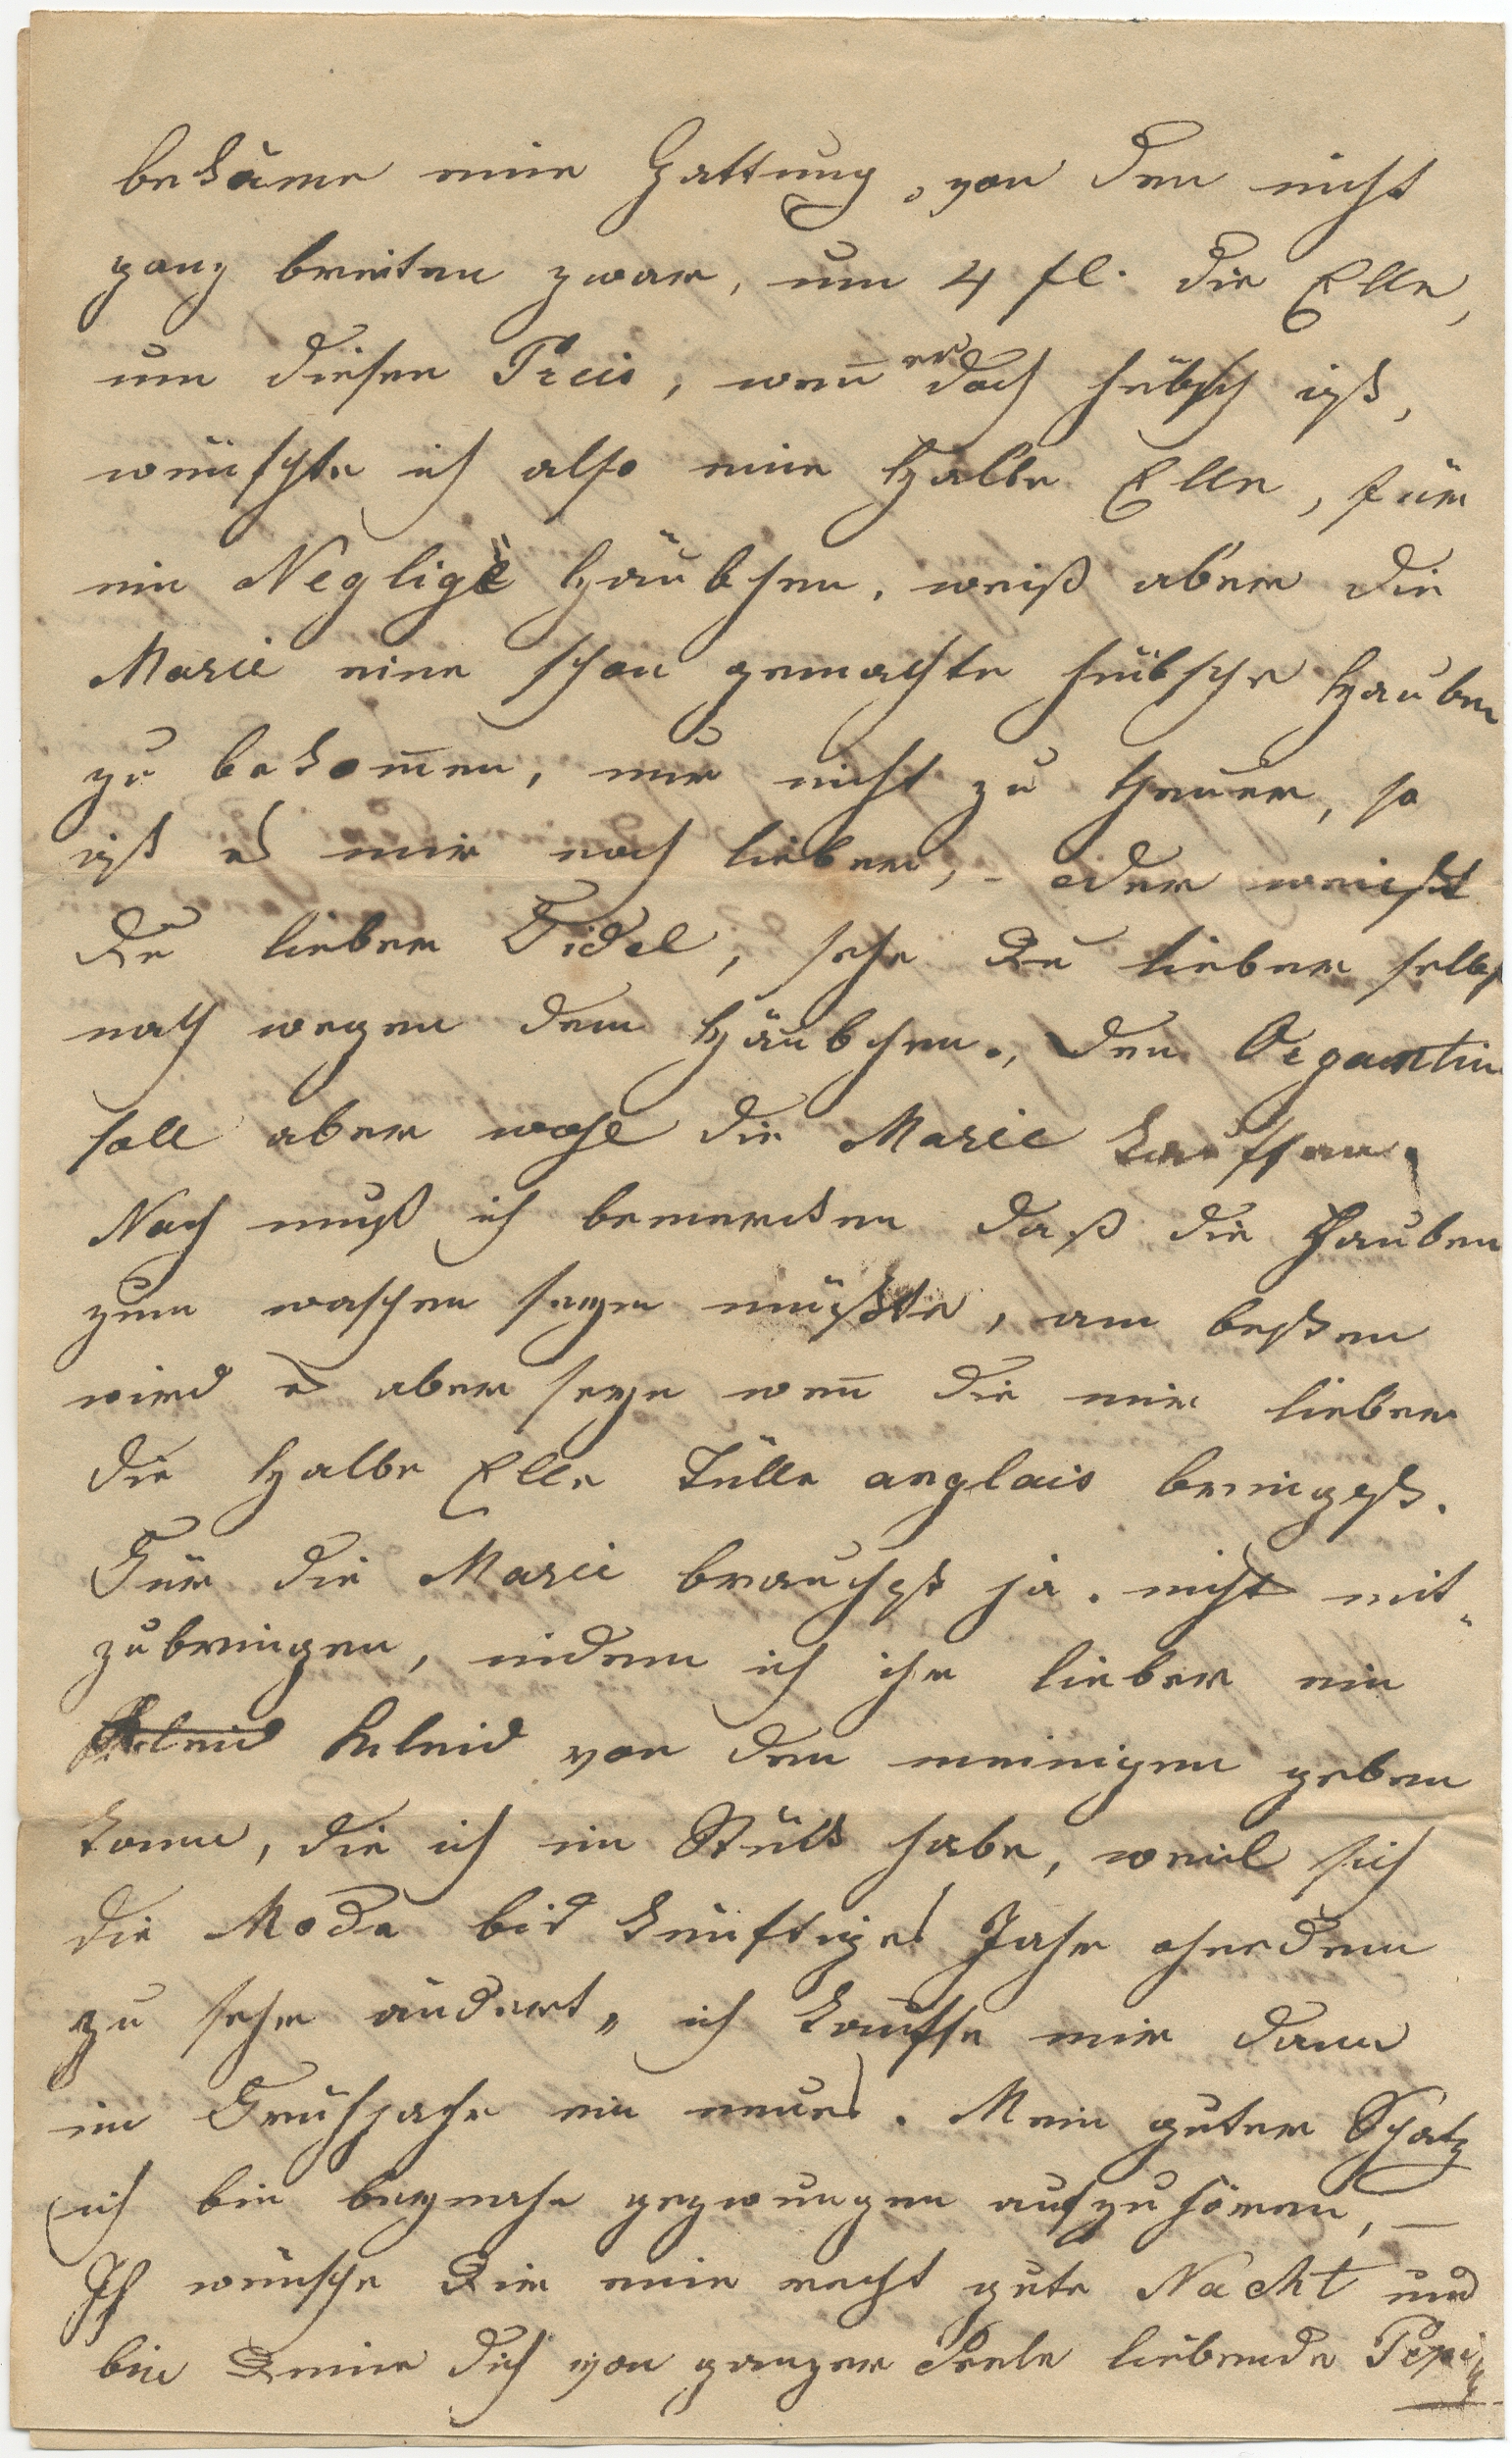 bekäme eine Gattung, von den nicht
ganz breiten zwar, um 4 fl. die Elle,
um diesen Preis, wen̄ er doch hübsch ist,
wünschte ich also eine Halbe Elle, für
ein Negligè Häubchen. weiß aber die
Marie eine schon gemachte hübsche Hauben
zu bekom̄en, nur nicht zu theuer, so
ist es mir noch lieber, – oder weißt
Du lieber Fidel, sehe Du lieber selbst
nach wegen dem Häubchen., den Organtin
soll aber wohl die Marie kauffen.
Noch muß ich bemerken daß die Hauben
zum waschen seyn müßte, am besten
wird es aber seyn wen̄ Du mir lieber
die Halbe Elle Tülle anglais bringest.
Für die Marie brauchst ja nichts mit„
zubringen, indem ich ihr lieber ein
Kleid Kleid von den meinigen geben
kann, die ich im Stück habe, weil sich
die Mode bis künftiges Jahr ohnedem
zu sehr ändert, ich kauffe mir dann
im Frühjahr ein neues. Mein guter Schatz
ich bin beynahe gezwungen aufzuhören, –
Ich wünsche Dir eine recht gute Nacht und
bin Deine Dich von ganzer Seele liebende Pepi